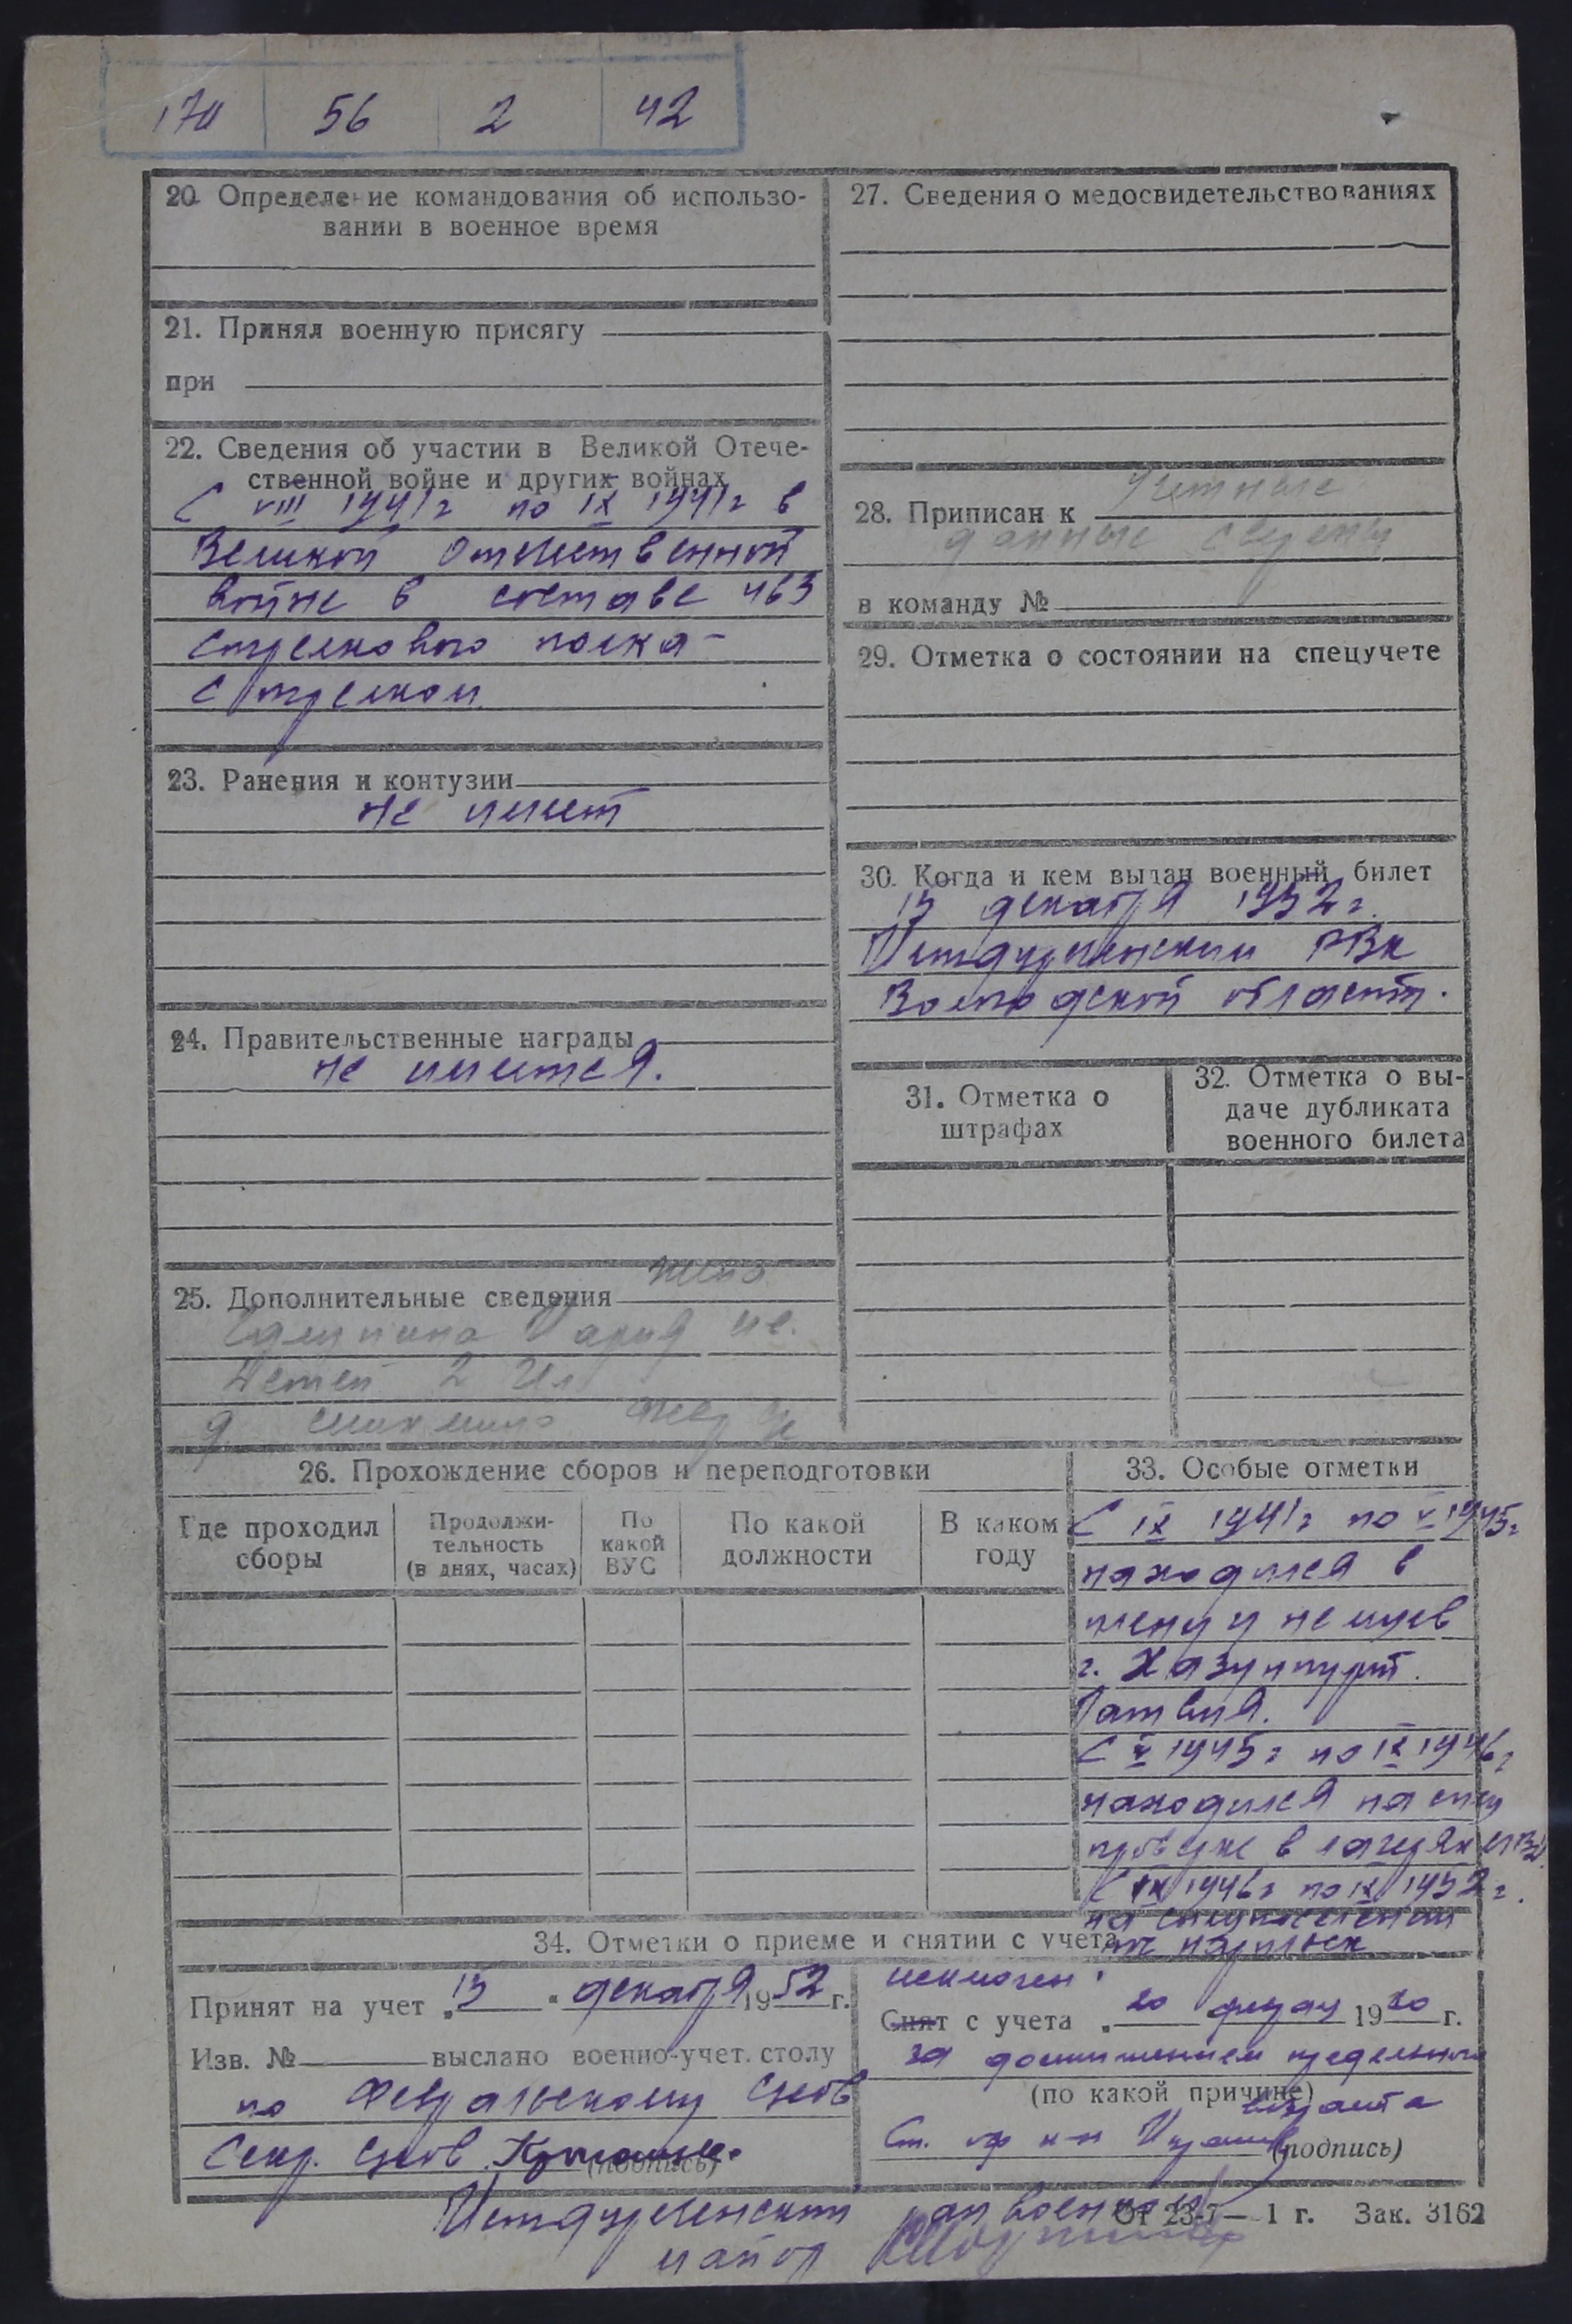 170 56 2 42
20. Определение командования об использо-
вании в военное время
21. Принял военную присягу
при
22. Сведения об участии в Великой Отече-
ственной войне и других войнах
С VIII 1941г по IX 1941г в
Великой Отечественной
войне в составе 463
стрелкового полка -
стрелком.
23. Ранения и контузии
не имеет
24. Правительственные награды
не имеется.
25. Дополнительные сведения жена
Мария Ив.
Детей 2 чел
27. Сведения о медосвидетельствованиях
28. Приписан к Учетные
данные сверены
в команду №
29. Отметка о состоянии на спецучете
30. Когда и кем выдан военный билет
15 декабря 1952 г.
РВК
Вологодской област.
31. Отметка о
штрафах
32. Отметка о вы-
даче дубликата
военного билета
26. Прохождение сборов и переподготовки
Где проходил
сборы
Продолжи-
тельность
(в днях, часах)
По
какой
ВУС
По какой
должности
В каком
году
33. Особые отметки
С IX 1941г по V 1945г
находился в
плену у немцев
г. Хазунпурт.
Латвия.
С V 1945г по IX 1946г
находился на спец
проверке в лагерях МВД.
С IX 1946г по IX 1952г.
на спецпоселении
34. Отметки о приеме и снятии с учета
Принят на учет „15" декабря 1952 г.
Изв. № выслано военно-учет. столу
по Февральскому с/сов
Секр. с/сов
(подпись)
исключен
Снят с учета „20 1960 г.
за достижением предельного
(по какой причине)
возраста
Ст. оф к-н
(подпись)
райвоенком
майор
От 23-7— 1 г. Зак. 3162